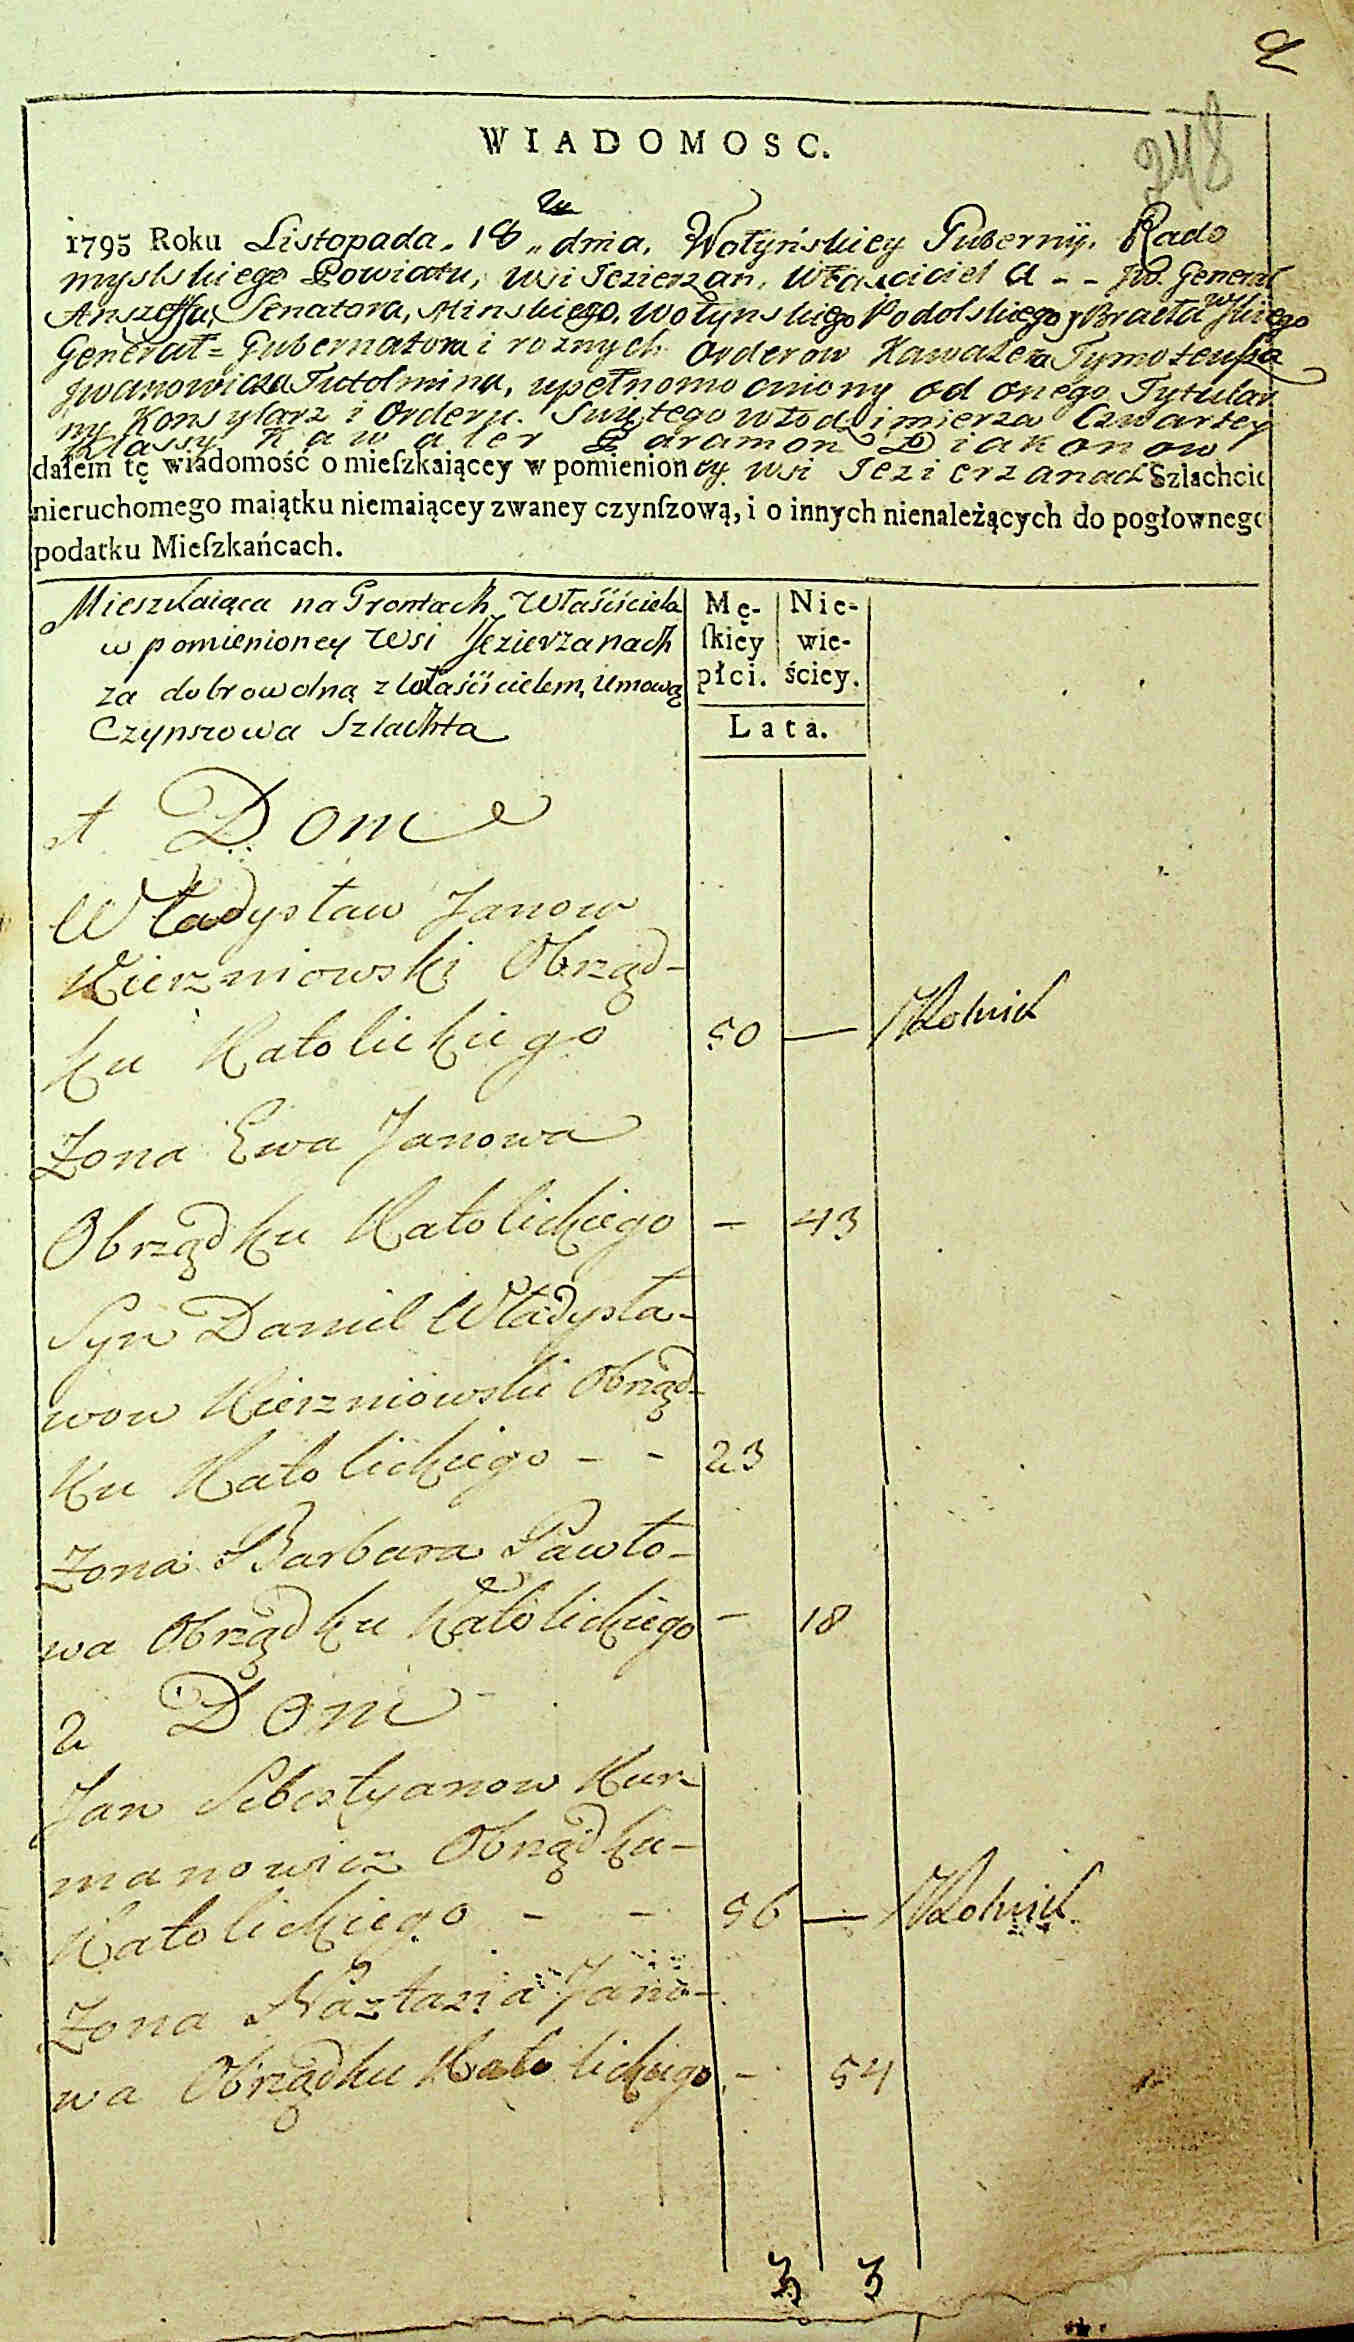 248
WIADOMOSC.
1795 Roku Listopada 18 dnia, Wołyńskiey Gubernij, Rado
myslskiego Powiatu, wsi Jezierzan, właściciel a - - Jw. General
Anszeffa, Senatora, Minskiego, Wołynskiego Podolskiego y Bracławskiego
Generał= Gubernatora i roznych Orderow Kawalera Tymoteusza
Jwanowicza Tutolmina, upełnomocniony od onego Tytular
ny Konsylarz i Orderu Swiętego Włodzimierza Czwartey
Klassy Kawaler Paramon Diakonow
dałem tę wiadomość o mieſzkaiącey w pomienion ey wsi Jezierzanach Szlachcie
nieruchomego maiątku niemaiącey zwaney czynſzową, i o innych nienależących do pogłownego
podatku Mieſzkańcach.
Mieszkaiąca na Gromtach Właściciela
w pomienioney Wsi Jezierzanach
za dobrowolną z Właścicielem, Umową
Czynszowa Szlachta
Mę- Nie-
ſkiey wie-
płci. ściey.
Lata.
1 Dom
Władysław Janow
Kierzniowski Obrząd-
ku Katolickiego 50 — Rolnik
Zona Ewa Janowa
Obrządku Katolickiego - 43
Syn Daniel Władysła-
wow Kierzniowski Obrząd-
Ku Katolickiego - - 23
Zona Barbara Pawło-
wa Obrządku Katolickiego - 18
2 Dom
Jan Sebestyanow Kur-
manowicz Obrządku-
Katolickiego - - 56 — Rolnik
Zona Nastazia Jano-
wa Obrządku Katolickiego - 54
3 3